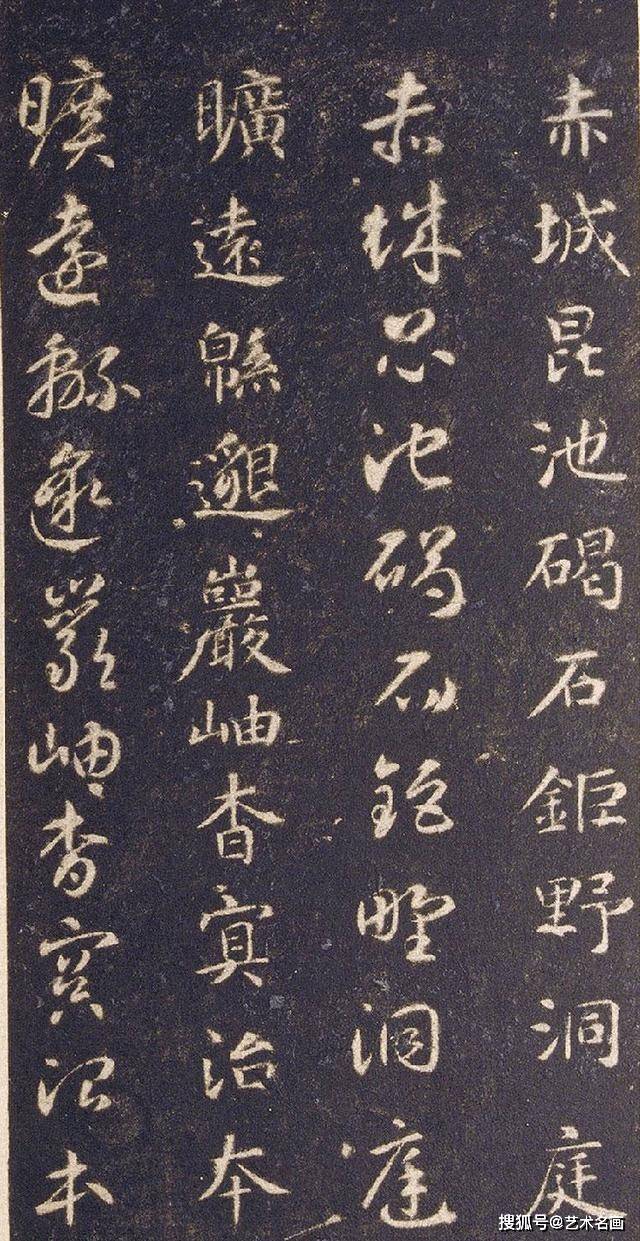 赤城昆池碣石鉅野洞庭
赤城昆池碣石鉅野洞庭
曠遠緜邈巖岫杳冥治本
曠遠緜邈巖岫杳冥治本
搜狐号@艺术名画